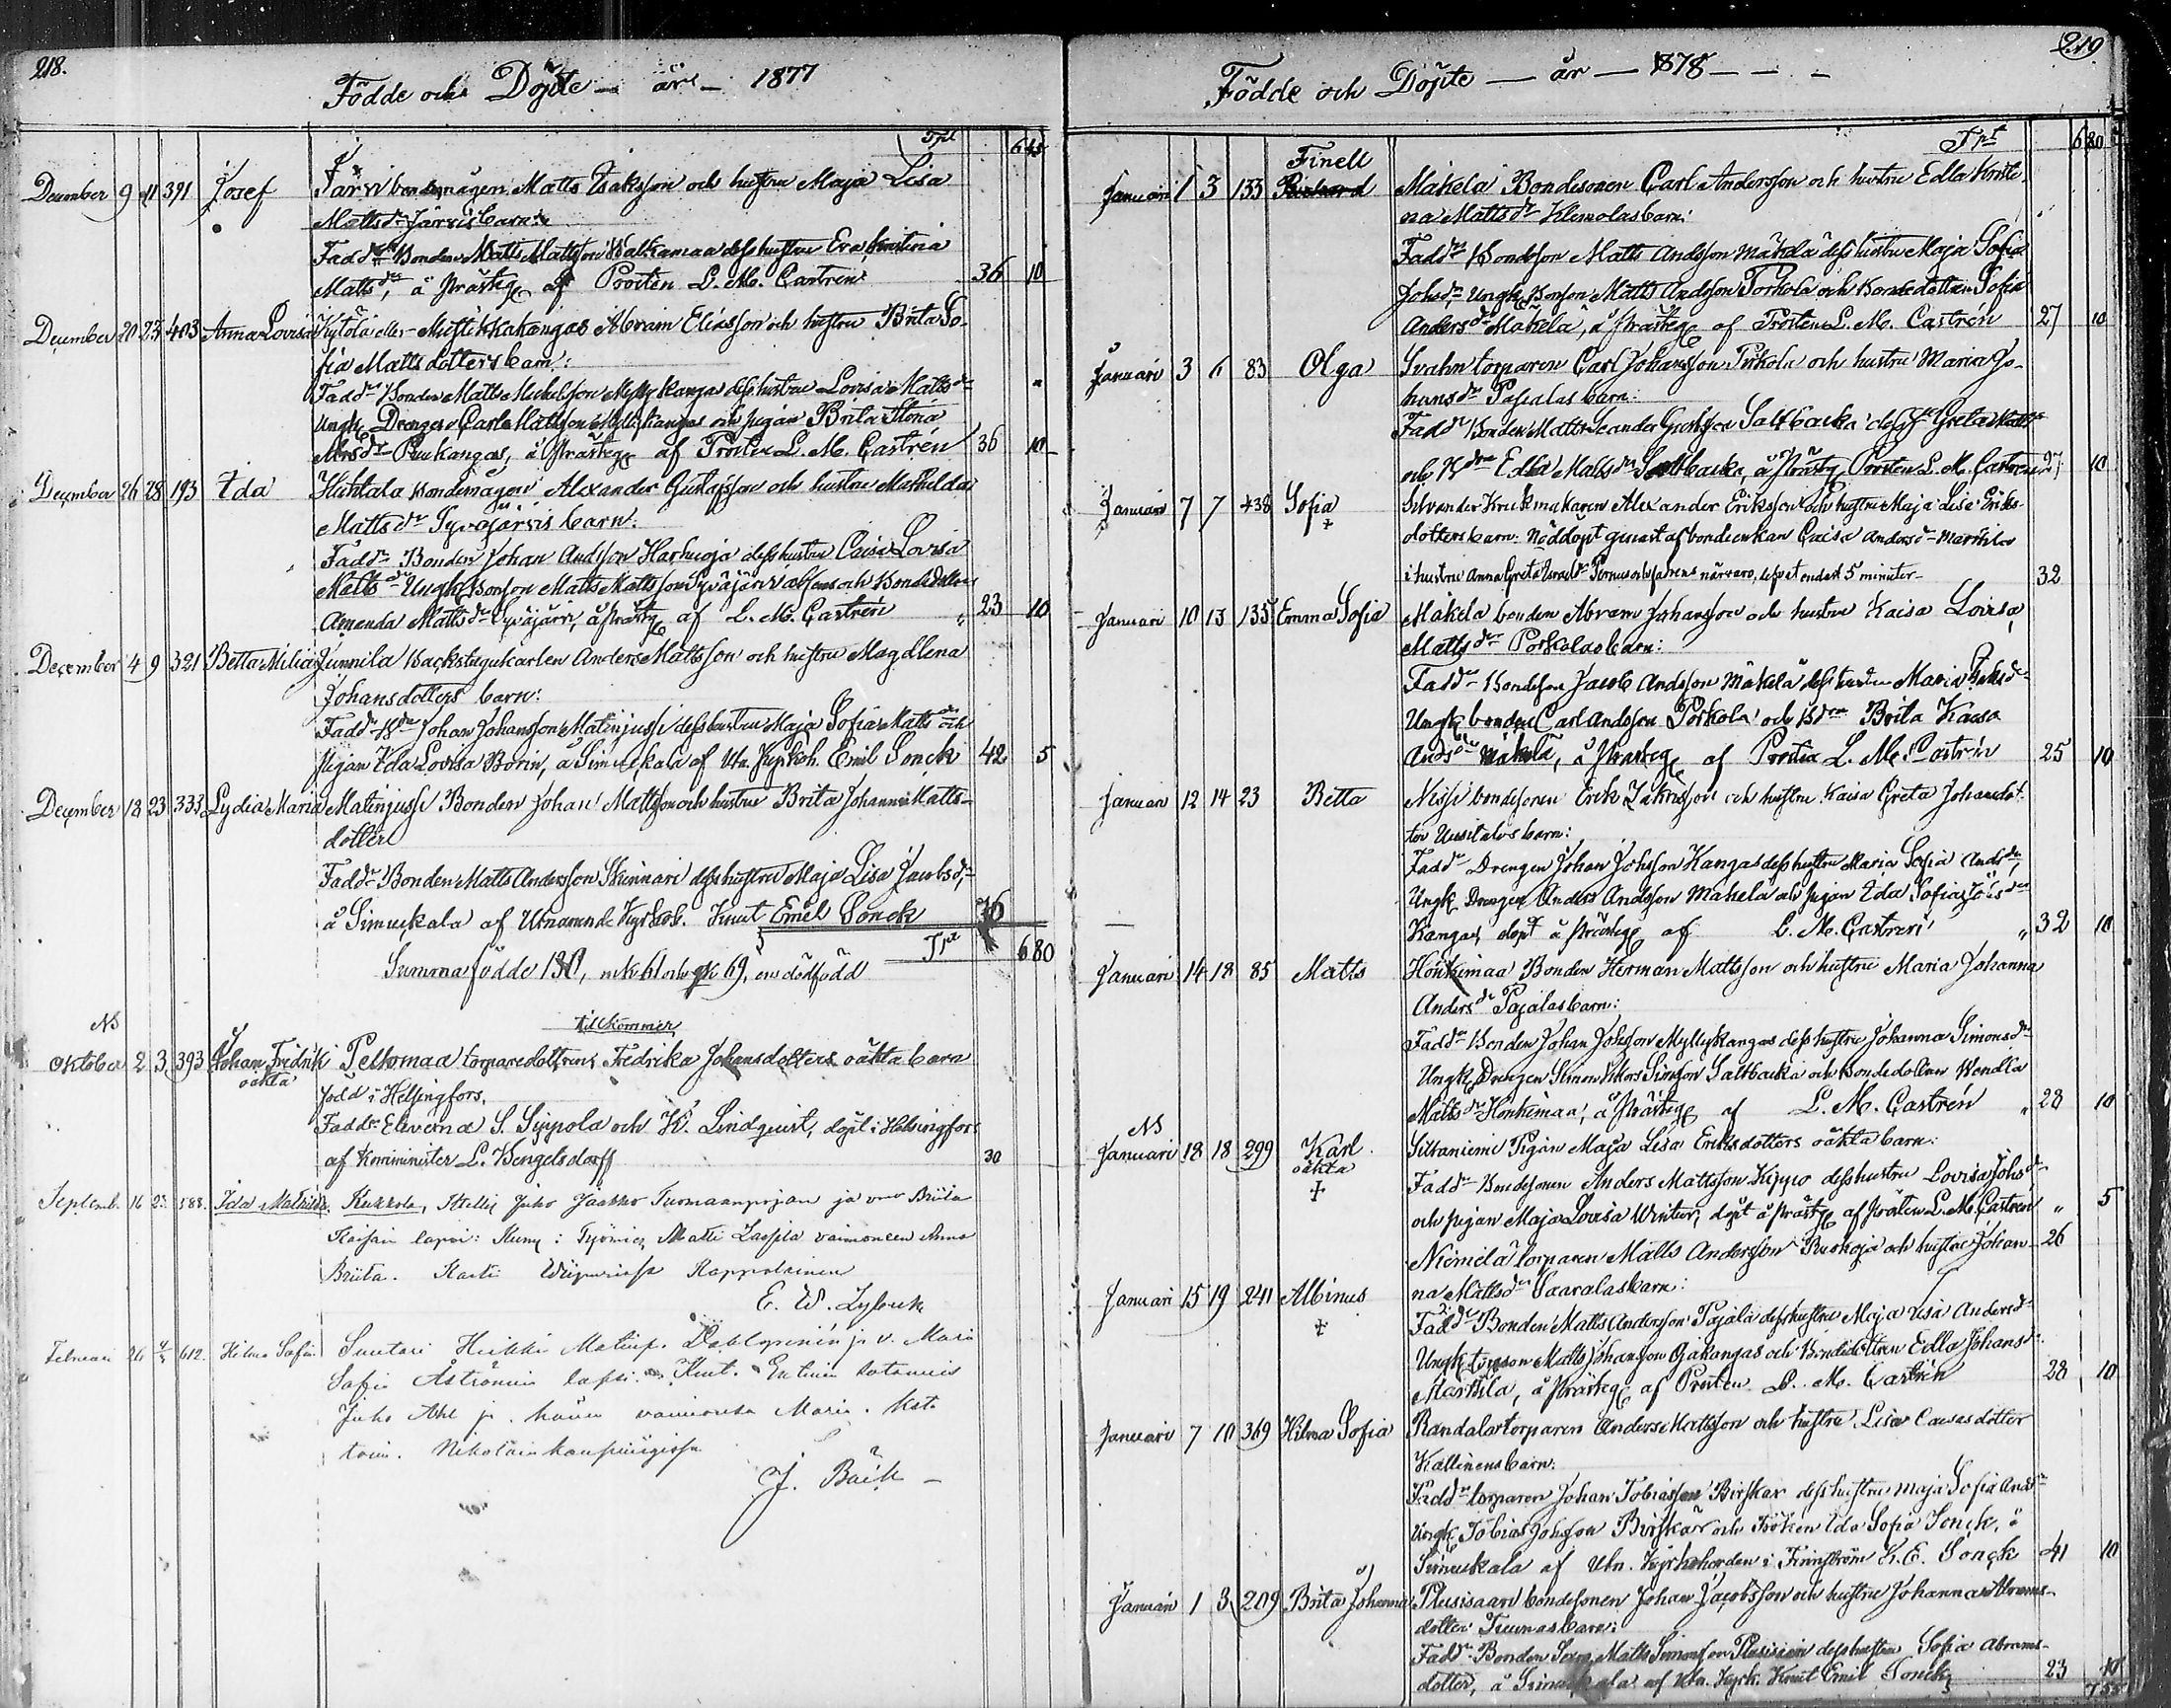 218.
Födde och Döpte — år — 1877
Tpt 6 45
December 9 11 391 Josef Järvi bondemågen Matts Isaksson och hustru Maja Lisa
Mattsdr Järvis barn:
Faddr Bonden Matts Mattsson Walkamaa dess hustru Eva Kristina
Mattsdr, å Prästeg af Prosten L. M. Castrén 36 10
December 20 23 403 Anna Lovisa Kytölä eller Mustikkakangas Abram Eliasson och hustru Brita So-
fia Mattsdotters barn:
Faddr Bonden Matts Michelsson Myllykangas dess hustru Lovisa Mattsdr
Ungk Drengen Carl Mattsson Myllykangas och pigan Brita Stina
Andsdr Puukangas, å Prästeg af Prosten L. M. Castrén 36 10
December 26 28 193 Ida Huhtala bondemågen Alexander Gustafsson och hustru Mathilda
Mattsdr Syväjärvis barn:
Faddr Bonden Johan Andsson Harhuoja dess hustru Caisa Lovisa
Mattsdr Ungk Bonson Matts Mattsson Syväjärvi och Bondedottren
Amanda Mattsdr Syväjärvi, å Prästeg af L. M. Castrén 23 10
December 4 9 321 Betta Milia Junnila Backstugukarlen Anders Mattsson och hustru Magdlena
Johansdotters barn:
Faddr Bdn Johan Johansson Matinjussi dess hustru Maja Sofia Mattsdr och
pigan Ida Lovisa Borin, å Simukala af Utn. Kyrkoh. Emil Sonck 42 5
December 18 23 333 Lydia Maria Matinjussi Bonden Johan Mattsson och hustru Brita Johanna Matts-
dotter
Faddr Bonden Matts Andersson Skinnari dess hustru Maja Lisa Jacobsdr,
å Simukala af Utnämnde Kyrkoh. Knut Emil Sonck 36
Tpt 6 80
Summa födde 130, mk 61 och qk 69, en dödfödd
Tillkommer
NB
Oktober 2 3 393 Johan Fredrik Peltomaa torparedottrens Fredrika Johansdotters oäkta barn
oäkta
född i Helsingfors.
Faddr Eleverna S. Sippola och K. Lindquist, döpt i Helsingfors
af Komminister L. Wengelsdorff 30
Septemb. 16 23 588. Ida Mathilda. Kukkola, Itellis Juho Jaakko Tuomaanpojan ja vmo Briita
Kaisan lapsi: Kumy: Työmies Matti Laspla vaimoneen Anna
Briita. Kasti Wiipurissa Kappalainen
E. W. Lybeck
Februari 26 4/3 612. Hilma Sofia Suutari Heikki Matinp. Dahlgrenin ja v. Maria
Sofia Åströmin lapsi. Kut. Entinen sotamies
Juho Ahl ja hänen vaimonsa Maria. Kas
toin. Nikolainkaupungissa
J. Bäck —
219.
Födde och Döpte — år — 1878 — — —
Tpt 6 80
Januari 1 3 133 Finell Mäkelä Bondesonen Carl Andersson och hustru Edla Kristi-
na Mattsdr Klemolas barn:
Faddr Bondson Matts Andsson Mäkelä dess hustru Maja Sofia
Johsdr Ungk Bonson Matts Andsson Porkola och Bondedottren Sofia
Andersdr Mäkelä, å Prästeg af Prosten L. M. Castrén 27 10
Januari 3 6 83 Olga Svahn torparen Carl Johansson Pirkola och hustru Maria Jo-
hansdr Pajalas barn:
Faddr Bonden Matts Leander Saltbacka dess hu Greta Mattsdr
och Bdn Edla Mattsdr Saltbacka, å Prästg Prosten L. M. Castrén 27 10
Januari 7 7 438 Sofia Silvander Krukmakaren Alexander Eriksson och hustru Maja Lisa Eriks-
dotters barn: Nöddöpt genast af bondeenkan Caisa Andersdr Marttila
i hustru Anna Greta Israelsdr Pernus och fadrens närvaro, lefvat endast 5 minuter 32
Januari 10 13 135 Emma Sofia Mäkelä bonden Abram Johansson och hustru Kaisa Lovisa
Mattsdr Porkolas barn:
Faddr Bondson Jacob Andsson Mäkelä dess hustru Maria Isaksdr
Ungk bonden Carl Andsson Porkola och Bdn Brita Kaisa
Andsdr Mäkelä, å Prästeg af Prosten L. M. Castrén 25 10
Januari 12 14 23 Betta Nissi bondesonen Erik Zakrisson och hustru Kaisa Greta Johansdot-
ter Uusitalos barn:
Faddr Drengen Johan Johsson Kangas dess hustru Maria Sofia Andsdr,
Ungk Drengen Anders Andsson Mäkelä och pigan Ida Sofia Johsdr
Kangas, döpt å Prästeg af L. M. Castrén 32 10
Januari 14 18 85 Matts Honkimaa Bonden Herman Mattsson och hustru Maria Johanna
Andersdr Pajalas barn:
Faddr Bonden Johan Johsson Myllykangas dess hustru Johanna Simonsdr
Ungk Drengen Simon Simsson Saltbacka och Bondedottren Wendla
Mattsdr Honkimaa, å Prästeg af L. M. Castrén 28 10
NB
Januari 18 18 299 Karl Siltaniemi Pigan Maja Lisa Eriksdotters oäkta barn:
oäkta
Faddr Bondesonen Anders Mattsson Kippo dess hustru Lovisa Johsdr
och pigan Maja Lovisa Winter, döpt å Prästg af Prosten L. M. Castrén 5
Januari 15 19 241 Albinus Niemelä torparen Matts Andersson Ruokoja och hustru Johan- 26
na Mattsdr Saaralas barn:
Faddr Bonden Matts Andersson Pajala dess hustru Maja Lisa Andersdr
Ungk torpson Matts Johansson Ojakangas och Bondedottren Edla Johansdr
Marttila, å Prästeg af Prosten L. M. Castrén 28 10
Januari 7 10 369 Hilma Sofia Randala torparen Anders Mattsson och hustru Lisa dotter
Kallinens barn:
Faddr torparen Johan Tobiasson Birskär dess hustru Maja Sofia Andsdr
Ungk Tobias Johsson Birskär och Fröken Ida Sofia Sonck, å
Simukala af Utn. Kyrkoherden i Finnström K. E. Sonck 41 10
Januari 1 3 209 Brita Johanna Plusisaari bondesonen Johan Jacobsson och hustru Johanna Abrams-
dotter Tuunas barn:
Faddr Bonden Matts Simonsson dess hustru Sofia Abrams-
dotter, å Simukala af Utn. Kyrk. Knut Emil Sonck 23 10